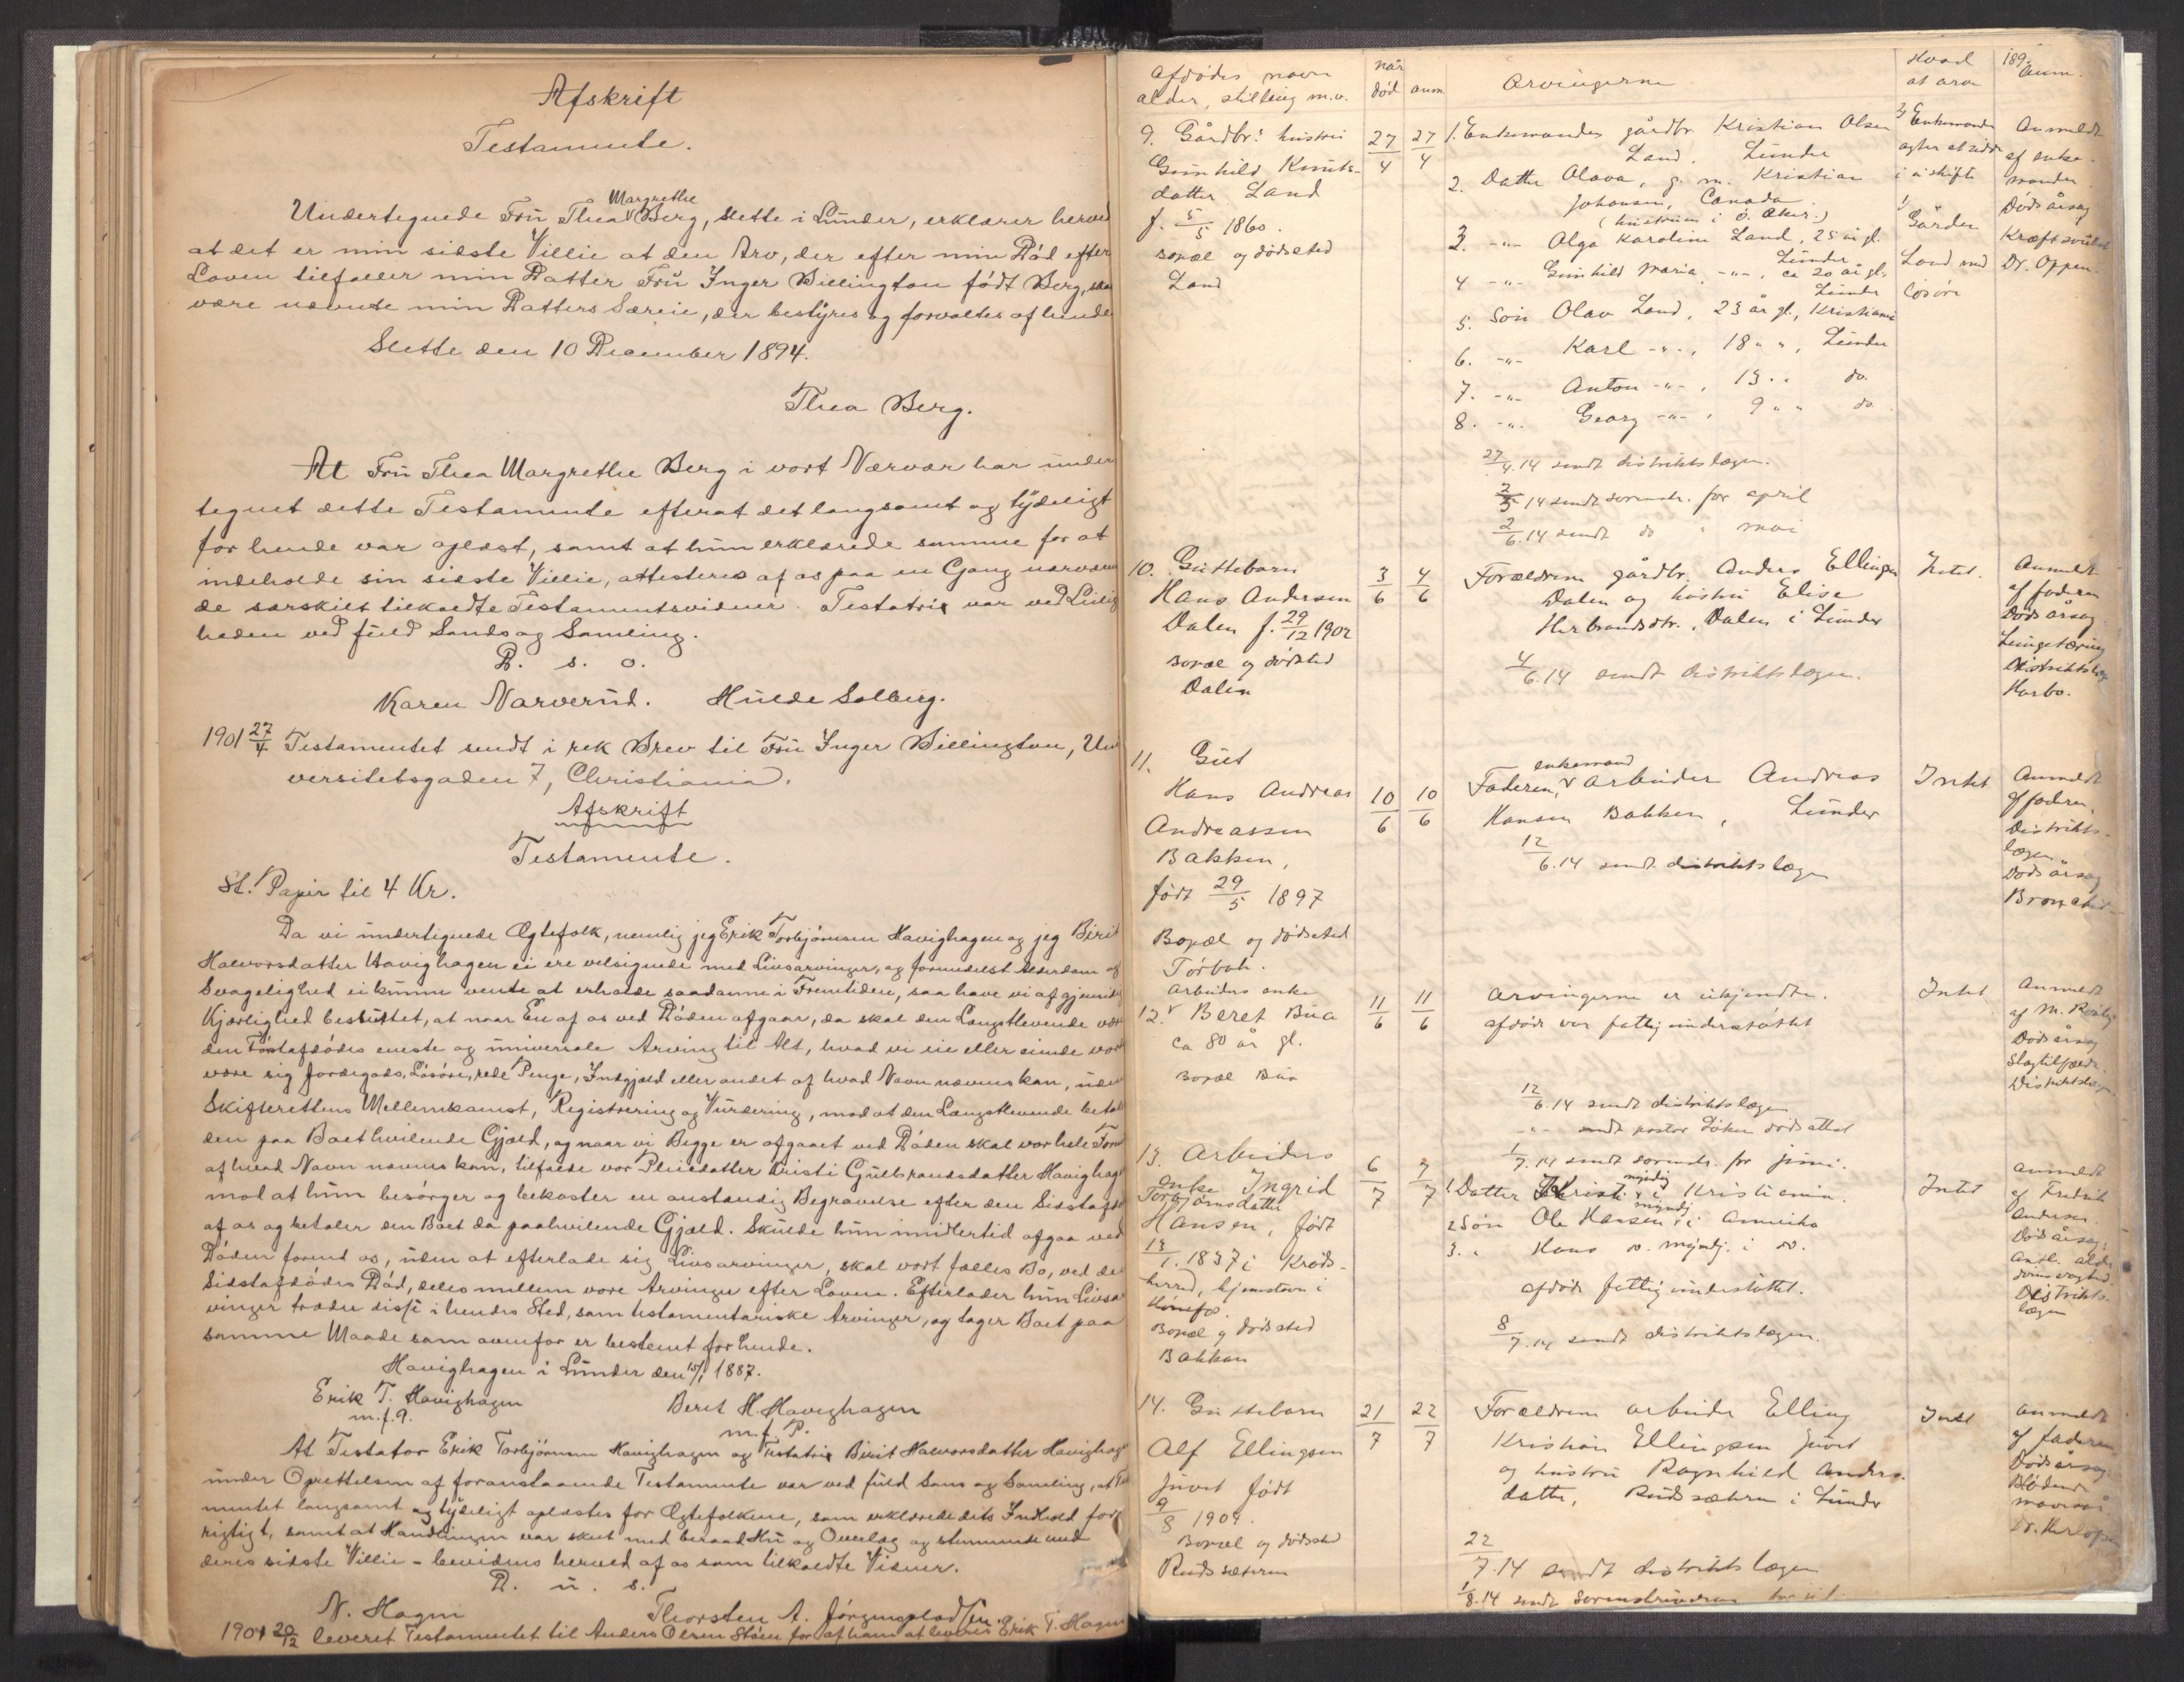 Afskrift
Testamente.
Margrethe
Undertegnede Frü Thea Berg, Slette i Lünder, erklærer herved
at det er min sidste Villie at den Arv, der efter min Död efter
Loven tilfalder min Datter Frü Inger Billington födt Berg, skal
være nævnte min Datters Særeie, der bestyres og forvaltes af hende
Slette den 10 December 1894.
Thea Berg.
At Frü Thea Margrethe Berg i vort Nærvær har under
tegnet dette Testamente efterat det langsomt og tydeligt
for hende var oplæst, samt at hün erklærede samme for at
indeholde sin sidste Villie, attesteres af os paa en Gang nærværen
de særskilt tilkaldte Testamentsvidner. Testatrix var ved Leilig
heden ved füld Sands og Samling.
D. s. o.
Karen Narverüd. Hülde Solberg.
1901 27/4 Testamentet sendt i rek Brev til Frü Inger Billington, Uni
versitetsgaden 7, Christiania.
Afskrift
Testamente.
St. Papir til 4 Kr.
Da vi ündertegnede Ægtefolk, nemlig jeg Erik Torbjörnsen Havighagen og jeg Birit
Halvorsdatter Havighagen ei ere velsignede med Livsarvinger, og formedelst Alderdom og
Svagelighed ei künne vente at erholde saadanne i Fremtiden, saa have vi af gjensidig
Kjærlighed beslüttet, at naar En af os ved Döden afgaar, da skal den Længstlevende være
den Förstafdödes eneste og üniversale Arving til Alt, hvad vi eie eller eiende vorde
være sig Jordegods, Lösöre, rede Penge, Indgjæld eller andet af hvad Navn nævnes kan, üden
Skifterettens Mellemkomst, Registrering og Vürdering, mod at den Længstlevende betaler
den paa Boet hvilende Gjæld, og naar vi Begge er afgaaet ved Döden skal vor hele Form
af hvad Navn nævnes kan, tilfalde vor Pleiedatter Kristi Gülbrandsdatter Havighagen
mod at hün besörger og bekoster en anstændig Begravelse efter den Sidstafdöde
af os og betaler den Boet da paahvilende Gjæld. Skülde hün imidlertid afgaa ved
Döden forend os, üden at efterlade sig Livsarvinger, skal vort fælles Bo, ved den
Sidstafdödes Död, deles mellem vore Arvinger efter Loven. Efterlader hün Livsar
vinger træder disse i hendes Sted, som testamentariske Arvinger, og tager Boet paa
samme Maade som ovenfor er bestemt for hende.
Havighagen i Lünder den 15/1 1887.
Erik T. Havighagen Berit H. Havighagen
m.f.P. m.f.P.
At Testator Erik Torbjörnsen Havighagen og Testatrix Birit Halvorsdatter Havighagen
ünder Oprettelsen af foranstaaende Testamente var ved füld Sans og Samling, at Testa
mentet langsomt og tydeligt oplæstes for Ægtefolkene, som erklærede dets Indhold for
rigtigt, samt at Handlingen var skeet med beraad Hü og Overlæg og stemmende med
deres sidste Villie – bevidnes herved af os som tilkaldte Vidner.
D. ü. s.
N. Hagen Thorsten A. Jörgensplads
1901 20/12 leveret Testamentet til Anders Olsen Stöen for af ham at leveres Erik T. Hagen
Afdödes navn
alder, stilling m.v.
når
död anm.
Arvingerne
Hvad
at arve
189
Anm.
9. Gårdbr.s hüstrü
Günhild Knüts-
datter Land
f. 5/5 1860.
bopæl og dödssted
Land
27/4 27/4
1. Enkemanden gårdbr. Kristian Olsen
Land, Lünder
2. Datter Olava, g. m. Kristian
Johansen, Canada
(hüstrüen i ö. Aker.)
3. -"- Olga Karoline Land, 25 år gl.
Lünder
4 -"- Günhild Maria -"-, ca 20 år gl.
Lünder
5. Sön Olav Land, 23 år gl., Kristiania
6. -"- Karl -"-, 18 " ", Lünder
7. -"- Anton -"-, 13 " " do.
8. -"- Georg -"-, 9 " " do
27/4.14 sendt distriktslægen.
2/5 14 sendt sorenskr. for april
2/6.14 sendt do " mai
Enkemanden
agter at sidde
i üskifte
Gården
Land med
lösöre
Anmeldt
af enke-
manden
Dödsårsag
Kræftsvülst
Dr. Oppen.
10. Güttebarn
Hans Andersen
Dalen f. 29/12 1902
bopæl og dödssted
Dalen
3/6 4/6
Forældrene gårdbr. Anders Ellingsen
Dalen og hüstrü Elise
Herbrandsdtr., Dalen i Lünder
4/6.14 sendt distriktslægen.
Intet.
Anmeldt
af faderen
Dödsårsag
Lüngetæring
Distriktslæge
Harbo.
11. Güt
Hans Andreas
Andreassen
Bakken,
födt 29/5 1897
Bopæl og dödssted
10/6 10/6
enkemand
Faderen, arbeider Andreas
Hansen Bakken, Lünder
12/6.14 sendt distriktslægen
Intet
Anmeldt
af faderen,
Distrikts-
lægen
Dödsårsag
Arbeiders enke
12. Beret Büa
ca 80 år gl.
Bopæl Büa
11/6 11/6
Arvingerne er ükjendte.
afdöde var fattigünderstöttet
12/6.14 sendt distriktslægen
-"- sendt pastor Löken dödsattest
1/7.14 sendt sorenskr. for jüni.
Intet
Anmeldt
af M.
Dödsårsag
Slagtilfælde
Distriktslægen
13. Arbeiders
enke Ingrid
Torbjörnsdatter
Hansen, födt
13/1.1837 i Kröds-
herred, hjemstavn i
Hönefos
Bopæl og dödssted
Bakken
6/7 7/7
myndig
1. Datter Kristi i Kristiania.
myndig
2 Sön Ole Hansen, i Amerika
3. " Hans do. myndig. i do.
afdöde fattigünderstöttet.
8/7.14 sendt distriktslægen.
Intet
anmeldt
af Fredrik
Andersen.
Dödsårsag:
Distrikts-
lægen
14. Güttebarn
Alf Ellingsen
Jüvet födt
9/8 1909.
Bopæl og dödssted
Rüdssæteren
21/7 22/7
Forældrene arbeider Elling
Kristian Ellingsen Jüvet
og hüstrü Ragnhild Anders-
datter, Rüdssæteren i Lünder
22/7.14 sendt distriktslægen
1/8.14 sendt Sorenskriveren for jüli
Intet
Anmeldt
af faderen
Dödsårsag
Blödende
mavesår